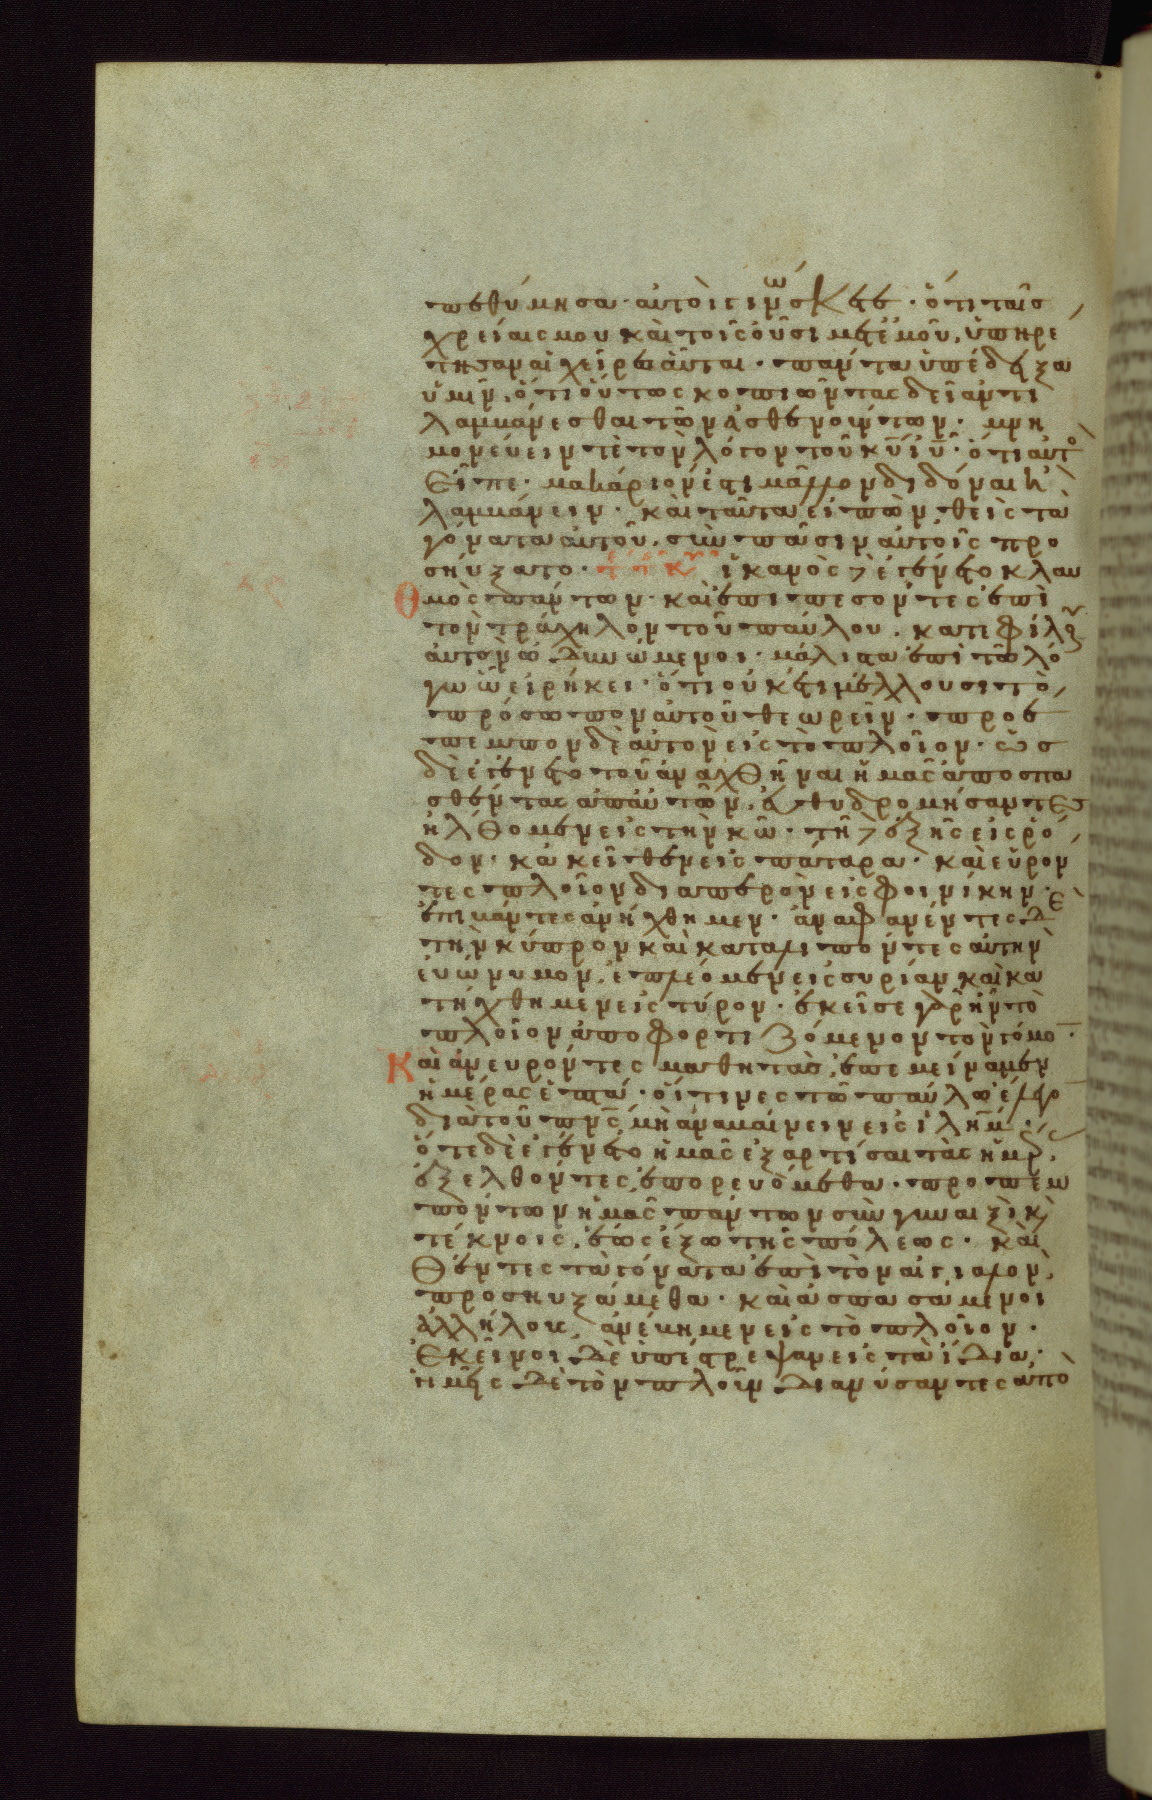 πεθύμησα· αὐτοὶ γινώσκετε· ὅτι ταῖς
χρείαις μου καὶ τοῖς οὖσι μετ' ἐμοῦ, ὑπηρέ
τησαν αἱ χεῖρες αὗται· πάντα ὑπέδειξα
ὑμῖν, ὅτι οὕτως κοπιῶντας δεῖ ἀντι
λαμβάνεσθαι τῶν ἀσθενούντων· μνη
μονεύειν τὲ τὸν λόγον τοῦ κ̅υ̅ ι̅υ̅· ὅτι αὐτὸς
εἶπε· μακάριον ἐστι μᾶλλον διδόναι ἢ
λαμβάνειν· καὶ ταῦτα εἰπὼν θεὶς τὰ
γόνατα αὐτοῦ, σὺν πᾶσιν αὐτοῖς προ
σηύξατο· ἱκανὸς δὲ ἐγένετο κλαυ
θμὸς πάντων· καὶ ἐπιπεσόντες ἐπὶ
τὸν τράχηλον τοῦ παύλου, κατεφίλουν
αὐτὸν ὀδυνώμενοι· μάλιστα ἐπὶ τῶ λό
γω ὧ εἰρήκει· ὅτι οὐκ ἔτι μέλλουσι τὸ
πρόσωπον αὐτοῦ θεωρεῖν· προέ
πεμπον δὲ αὐτὸν εἰς τὸ πλοῖον· ὡς
δὲ ἐγένετο τοῦ ἀναχθῆναι ἡμᾶς ἀποσπα
σθέντας ἀπ' αὐτῶν, εὐθυδρομήσαντες
ἤλθομεν εἰς τὴν κῶ· τῆ δὲ ἑξῆς εἰς ῥό
δον· κἀκεῖθεν εἰς πάταρα· καὶ εὑρόν
τες πλοῖον διαπερὸν εἰς φοινίκην·
ἐπιβάντες ἀνήχθημεν· ἀναφανέντες δὲ
τὴν κύπρον καὶ καταλιπόντες αὐτὴν
εὐώνυμον, ἐπλέομεν εἰς συρίαν καὶ κα
τήχθημεν εἰς τύρον· ἐκεῖσε γὰρ ἦν τὸ
πλοῖον ἀποφορτιζόμενον τὸν γόμον·
Καὶ ἀνευρόντες μαθητὰς, ἐπεμείναμεν
ἡμέρας ἑπτά· οἵτινες τῶ παύλω ἔλεγον
διὰ τοῦ π̅ν̅ς̅ μὴ ἀναβαίνειν εἰς ἱ̅λ̅η̅μ̅·
ὅτε δὲ ἐγένετο ἡμᾶς ἐξαρτίσαι τὰς ἡμέρας,
ἐξελθόντες ἐπορευόμεθα· προπεμ
πόντων ἡμᾶς πάντων σὺν γυναιξὶ καὶ
τέκνοις, ἕως ἔξω τῆς πόλεως· καὶ
θέντες τὰ γόνατα ἐπὶ τὸν αἰγιαλὸν,
προσηυξάμεθα· καὶ ἀσπασάμενοι
ἀλλήλους, ἀνέβημεν εἰς τὸ πλοῖον·
Ἐκεῖνοι δὲ ὑπέστρεψαν εἰς τὰ ἴδια·
ἡμεῖς δὲ τὸν πλοῦν διανύσαντες ἀπὸ